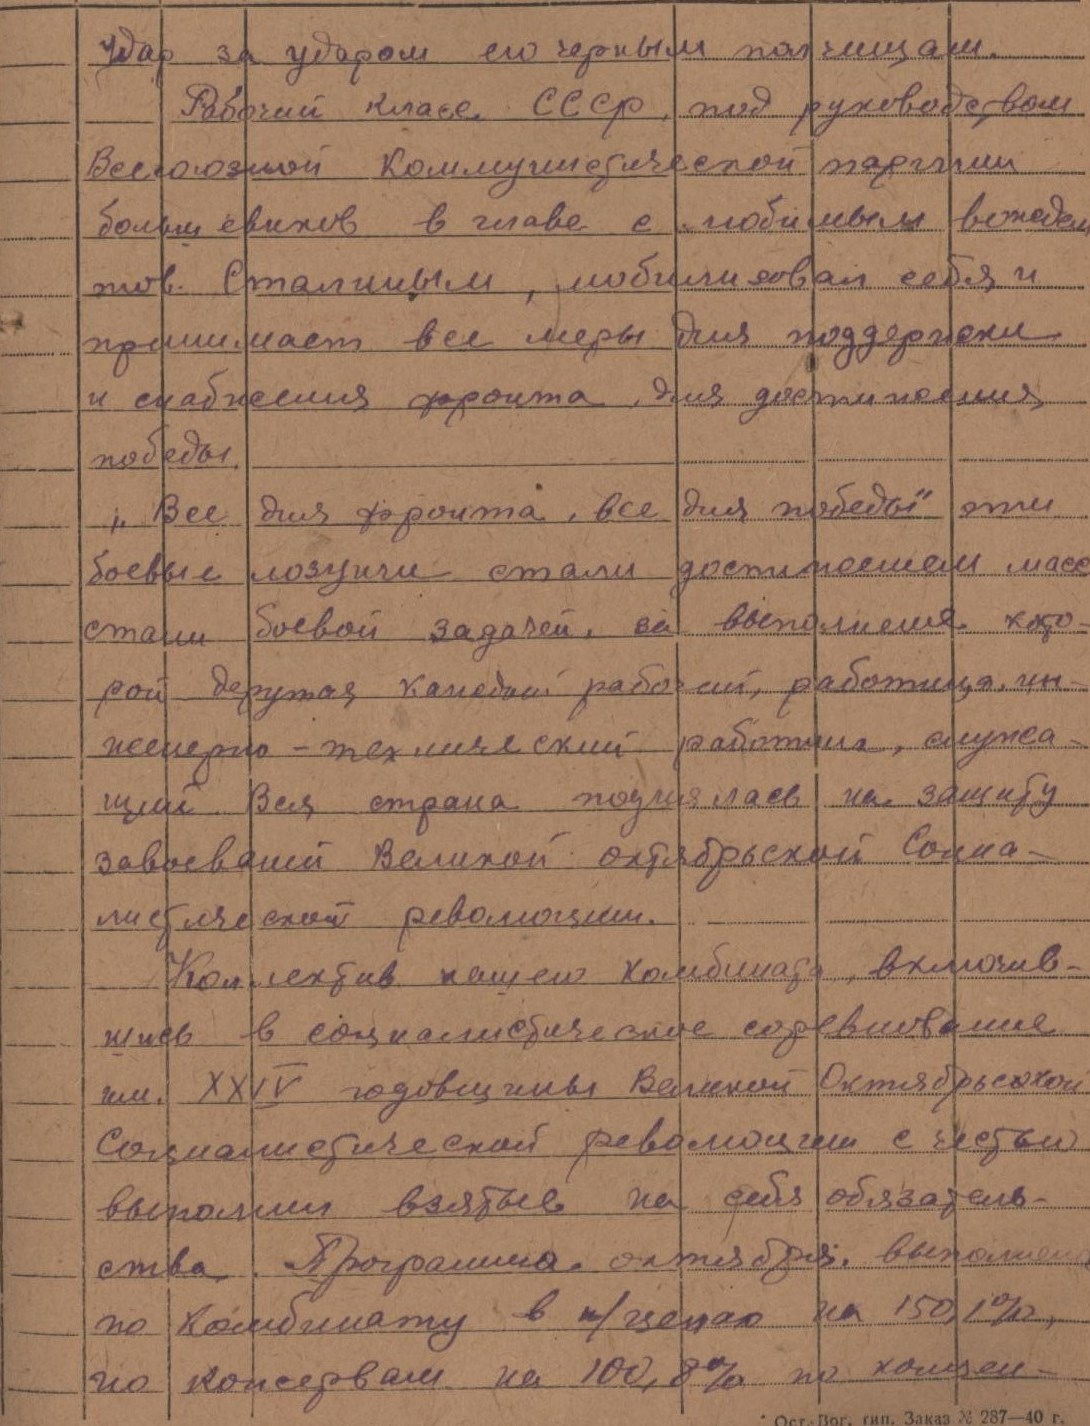 удар за ударом его черным полчищам.
Рабочий класс СССР, под руководством
Всесоюзной Коммунистической партии
большевиков в главе с любимым вождем
тов. Сталиным, мобилизовал себя и
принимает все меры для поддержки
и снабжения фронта, для достижения
победы.
„Все для фронта, все для победы" эти
боевые лозунги стали достижением масс
стали боевой задачей, за выполнение кото-
рой держатся каждый рабочий, работница, ин-
женерно-технический работник, служа-
щий. Вся страна поднялась на защиту
завоеваний Великой октябрьской Социа-
листической революции.
Коллектив нашего Комбината, включив-
шись в социалистическое соревнование
им. XXIV годовщины Великой Октябрьской
Социалистической революции с честью
выполнил взятые на себя обязатель-
ства. Программа октября, выполнена
по Комбинату в н/ценах на 150,1%,
по консервам на 100,8% по
Ост.-Вог. тип. Заказ № 287—40 г.